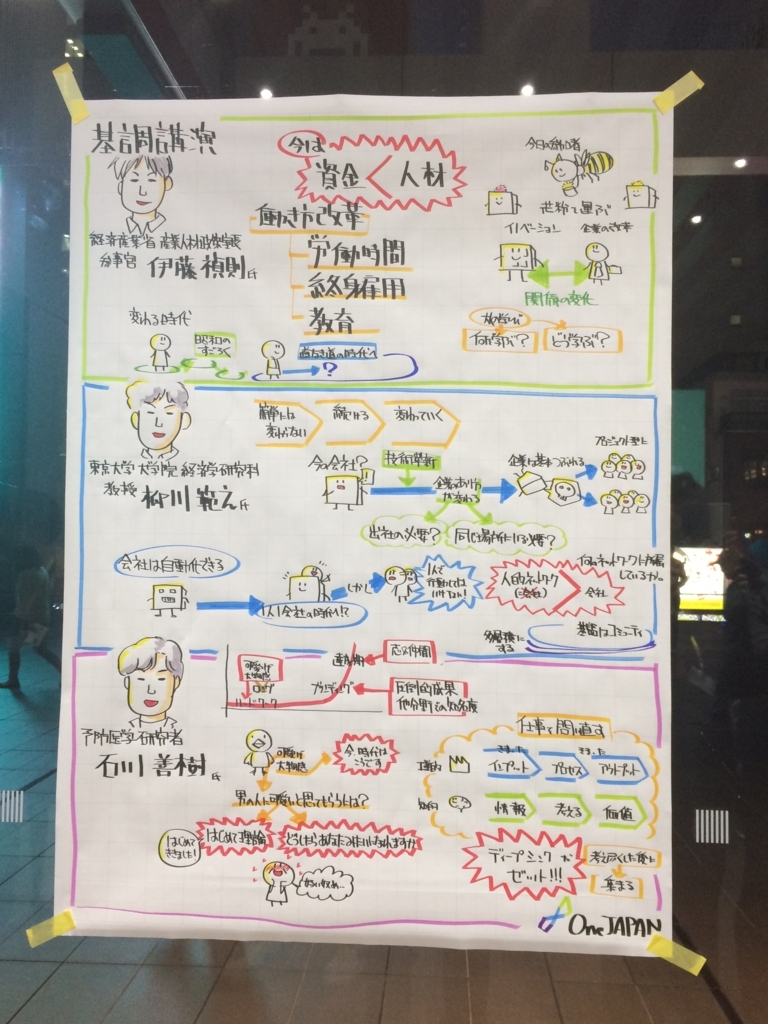 基調講演
今は
資金 < 人材
今日の参加者
世界で運ぶ
イノベーション
企業の改革
経済産業省 産業人材政策室
参事官 伊藤禎則氏
働き方改革
労働時間
終身雇用
教育
関係の変化
変わる時代
昭和の
すごろく
?
何を学ぶ?
どう学ぶ?
簡単には
変わらない
続ける
変わっていく
東京大学大学院 経済学研究科
教授 柳川範之氏
今の会社?
技術革新
企業のあり方
が変わる
プロジェクト型に
出社の必要?
同じ場所にいる必要?
会社は自動化できる
1人会社の時代!?
しかし
1人で
行動しては
いけない!
人的ネットワーク
(会社)
会社
何のネットワークに所属
しているか。
多層的に
する
コミュニティ
予防医学研究者
石川善樹氏
可愛げ
大物感
ハードワーク
ブランディング
連続期
志×仲間
圧倒的成果
他分野での知名度
可愛げ
大物感
今時分は
こうです
男の人に可愛いと思ってもらうには?
はじめて
きました!
はじめて理論
どうしたらあなたみたいになれますか
仕事を問い直す
インプット
プロセス
アウトプット
知的
情報
考える
価値
ディープシンク か
ゼット!!!
考え尽くした後に
集まる
One JAPAN